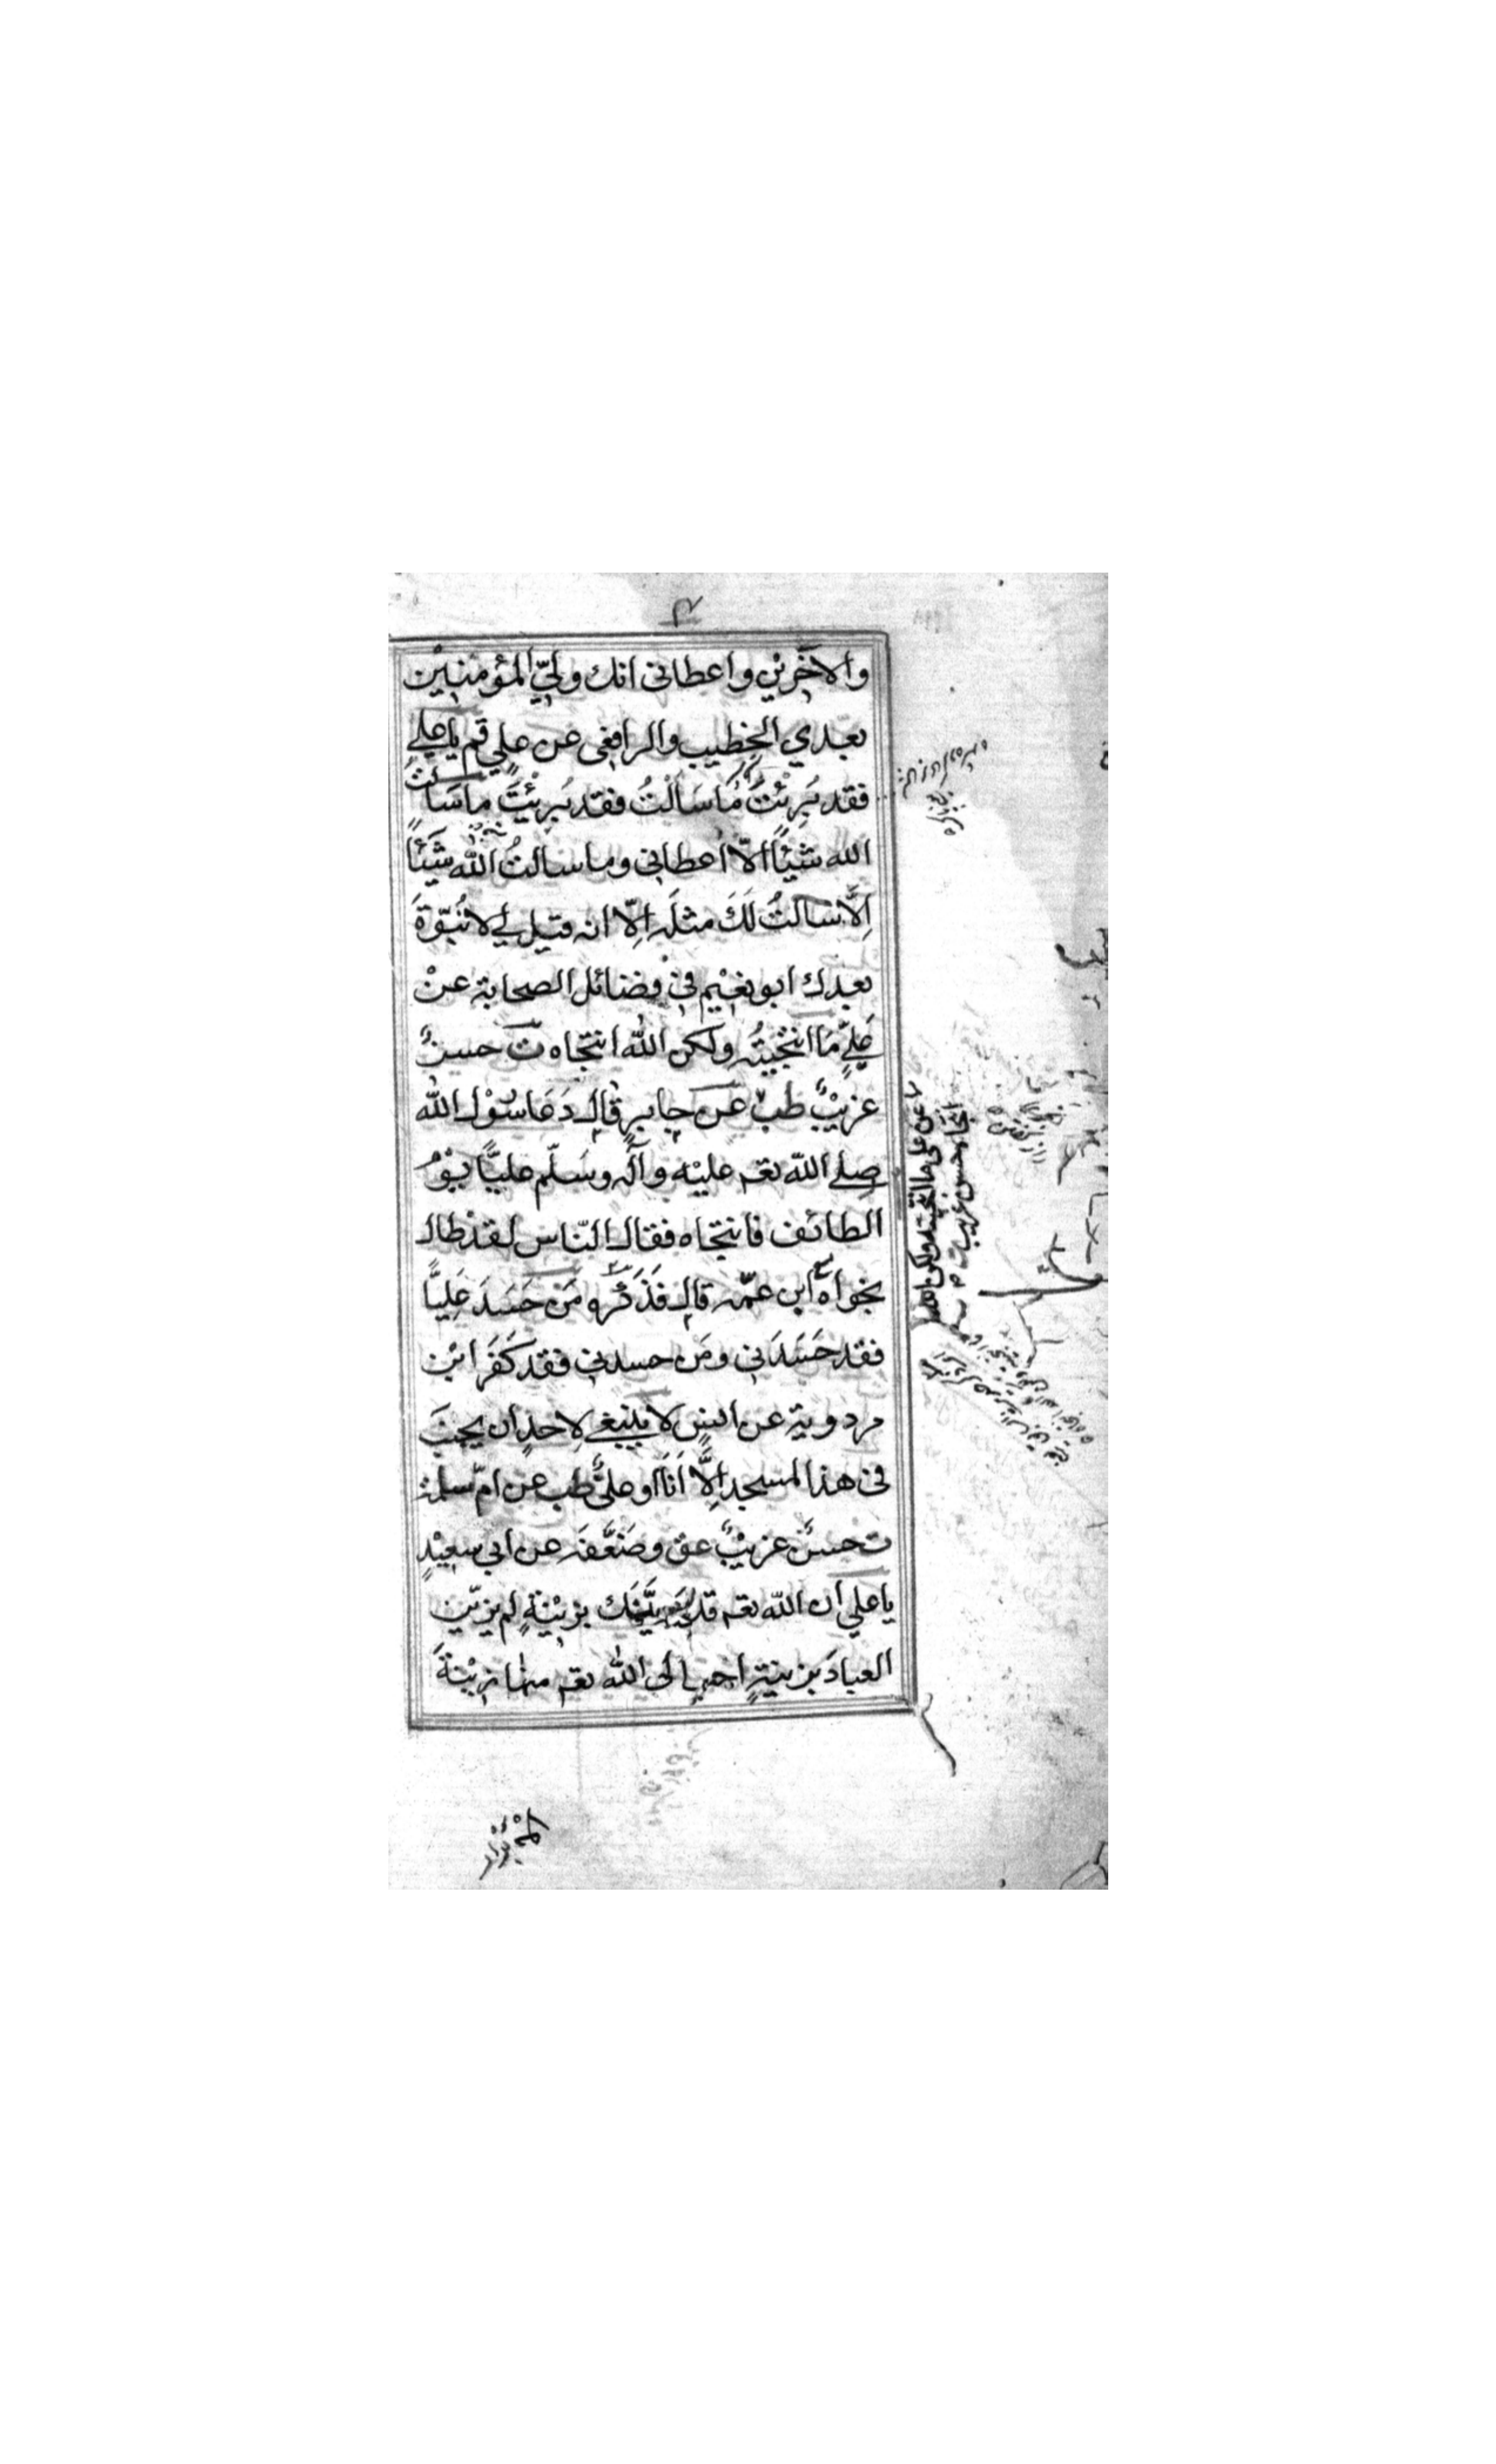 والآخرين واعطاني انك وليّ المؤمنيْن
بعدي الخطيب والرافعي عن علي قم يا علي
فقد بَرِئْتَ مَا سَالْتُ فقد بَرِيْتَ ما سَالتُ
الله شيْئًا الّا اعطاني وما سالتُ الله شَيْئًا
اِلّا سَالتُ لَكَ مثلَه اِلّا انه قيل لي لا نُبُوّةَ
بعدك ابو نعيْم في فضائل الصحابة عنْ
عَلِيٍّ مَا انتجيتُه ولكن الله انتجاه ت حسنٌ
غريْبٌ طب عن جابرٍ قال دَعَا رسُوْل الله
صلي الله تعم عليْه وآله وسَلّم عليًّا يوْمَ
الطائف فانتجاه فقال النّاس لقدْ طال
نجواه ابن عمّه قال فذكره مَن حَسَدَ عَلِيًّا
فقد حَسَدَني ومَن حسدني فقد كَفَرَ ابْن
مردوية عن انسٍ لا ينبغي لاحدٍ ان يجنبَ
في هذا المسجد اِلّا اَنَا او عليٌّ طب عن امّ سلمة
ت حسنٌ غريْبٌ عق وضَعَّفَه عن ابي سعِيْدٍ
يا علي ان الله تعم قد زيَّنَك بزيْنةٍ لم يزيّن
العبادَ بزينةٍ احب الى الله تعم منها زيْنةَ
عن علي ما انتجيته ولكن الله
انتجاه حسن غريب ت